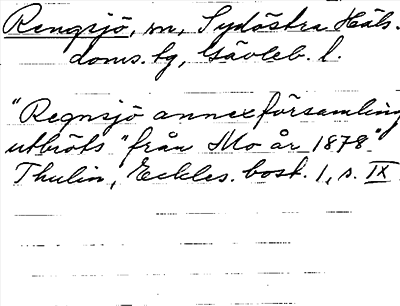 Rengsjö, sn, Sydöstra Häls.
doms. tg, Gävleb. l.
"Regnsjö annexförsamling
utbröts "från Mo år 1878."
Thulin, Eckles. bost. 1, s. IX